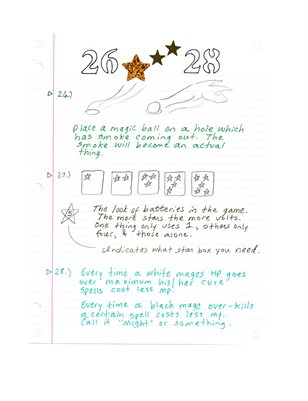 26 28
26.)
Place a magic ball on a hole which
has smoke coming out. The
smoke will become an actual
thing.
27.)
The look of batteries in the game.
The more stars the more volts.
One thing only uses 1, others only
four, & those alone.
Indicates what star box you need.
28.) Every time a white mages HP goes
over maximum his/her cure
spells cost less mp.
Every time a black mage over-kills
a certain spell costs less mp.
Call it "Might" or something.